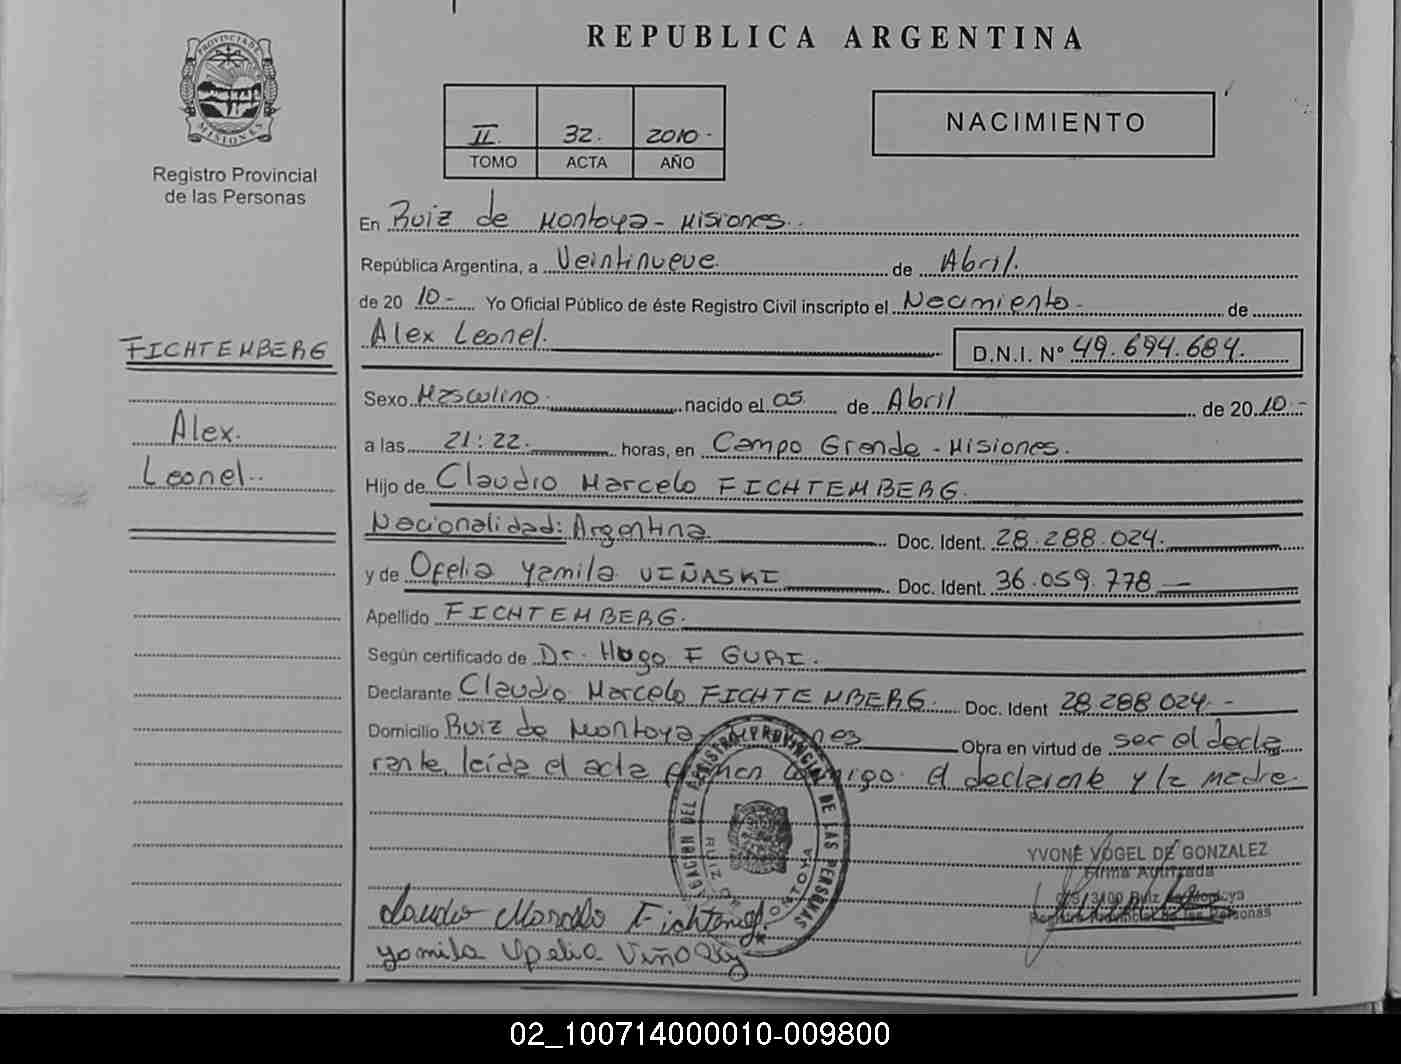 REPUBLICA ARGENTINA
PROVINCIA DE
MISIONES
Registro Provincial
de las Personas
II. 32. 2010-
TOMO ACTA AÑO
NACIMIENTO
En Ruiz de Montoya - Misiones.
República Argentina, a Veintinueve de Abril.
de 20 10- Yo Oficial Público de éste Registro Civil inscripto el Nacimiento - de
Alex Leonel. D.N.I. Nº 49.694.684.
FICHTEMBERG
Alex.
Leonel.
Sexo Masculino. nacido el 05 de Abril de 20 10.-
a las 21:22. horas, en Campo Grande - Misiones.
Hijo de Claudio Marcelo FICHTEMBERG.
Nacionalidad: Argentina Doc. Ident. 28.288.024.
y de Ofelia Yamila VIÑASKI Doc. Ident. 36.059.778 -
Apellido FICHTEMBERG.
Según certificado de Dr. Hugo F GURI.
Declarante Claudio Marcelo FICHTEMBERG. Doc. Ident 28.288.024. -
Domicilio Ruiz de Montoya Obra en virtud de ser el decla
rante. leída el acta firman conmigo. el declarante y la madre.
REGISTRO PROVINCIAL DE LAS PERSONAS
RUIZ DE MONTOYA
YVONE VOGEL DE GONZALEZ
Firma Autorizada
Ruiz de Montoya
Registro Provincial de las Personas
Claudio Marcelo Fichtemb.
Yamila Ofelia
02_100714000010-009800